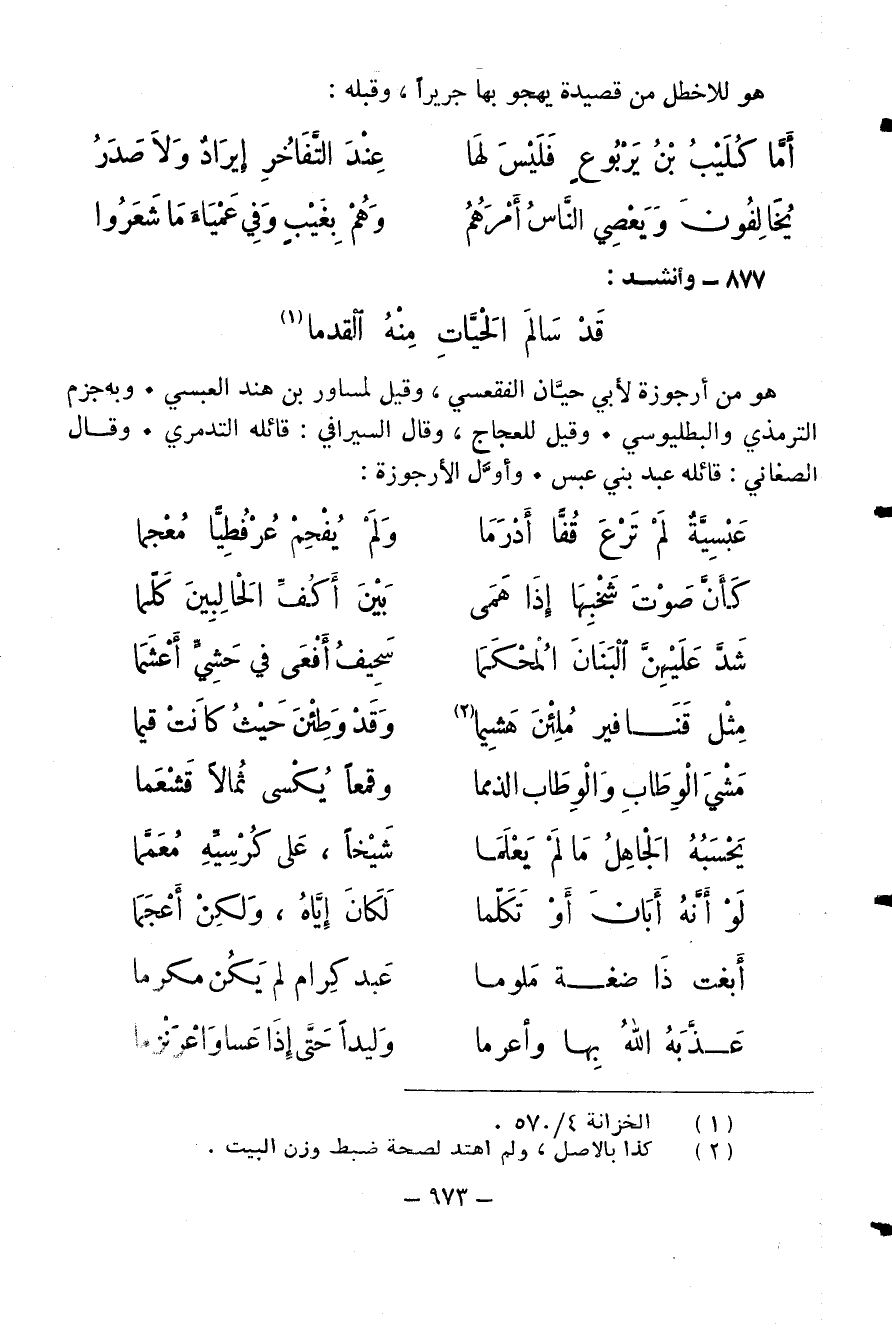 هو للاخطل من قصيدة يهجو بها جريراً ، وقبله :
أَمَّا كُلَيْبُ بْنُ يَرْبُوعٍ فَلَيْسَ لَهَا عِنْدَ التَّفَاخُرِ إِيرَادٌ وَلاَ صَدَرُ
يُخَالِفُونَ وَيَعْصِي النَّاسُ أَمْرَهُمُ وَهُمْ بِغَيْبٍ وَفِي عَمْيَاءَ مَا شَعَرُوا
٨٧٧ ــ وأنشــد :
قَدْ سَالَمَ الْحَيَّاتِ مِنْهُ ٱلْقدما(١)
هو من أرجوزة لأبي حيَّان الفقعسي ، وقيل لمساور بن هند العبسي • وبه جزم
الترمذي والبطليوسي • وقيل للعجاج ، وقال السيرافي : قائله التدمري • وقــال
الصغاني : قائله عبد بني عبس • وأوَّل الأرجوزة :
عَبْسِيَّةٌ لَمْ تَرْعَ قُفًّا أَدْرَمَا وَلَمْ يُفْحِمْ عُرْفُطِيًّا مُعْجما
كَأَنَّ صَوْتَ شَخْبِهَا إِذَا هَمَى بَيْنَ أَكُفِّ الْحَالِبِينَ كَلَّما
شَدَّ عَلَيْهِنَّ ٱلْبَنَانَ الْمُحْكَمَا سَحِيفُ أَفْعَى في حَشِيٍّ أَعْشَمَا
مِثْل قَنَــافير مُلِئْنَ هَشيما(٢) وَقَدْ وَطِئْنَ حَيْثُ كانَتْ قيما
مَشْيَ الْوِطَابِ وَالْوِطَاب الذمما وقمعاً يُكْسى ثُمالاً قَشْعَما
يَحْسَبُهُ الْجَاهِلُ مَا لَمْ يَعْلَمَــا شَيْخاً ، عَلى كُرْسِيِّهِ مُعَمَّما
لَوْ أَنَّهُ أَبَانَ أَوْ تَكَلَّما لَكَانَ إِيَّاهُ ، وَلكِنْ أَعْجَمَا
أَبغت ذَا ضغـــة مَلومــا عَبد كِرام لم يَكُن مكرما
عَــذَّبَهُ اللهُ بِهــا وأعرما وَليداً حَتَّى إِذَا عَسا وَاعْرَنْزما
(١) الخزانة ٥٧٠/٤ .
(٢) كذا بالاصل ، ولم اهتد لصحة ضبط وزن البيت .
– ٩٧٣ –